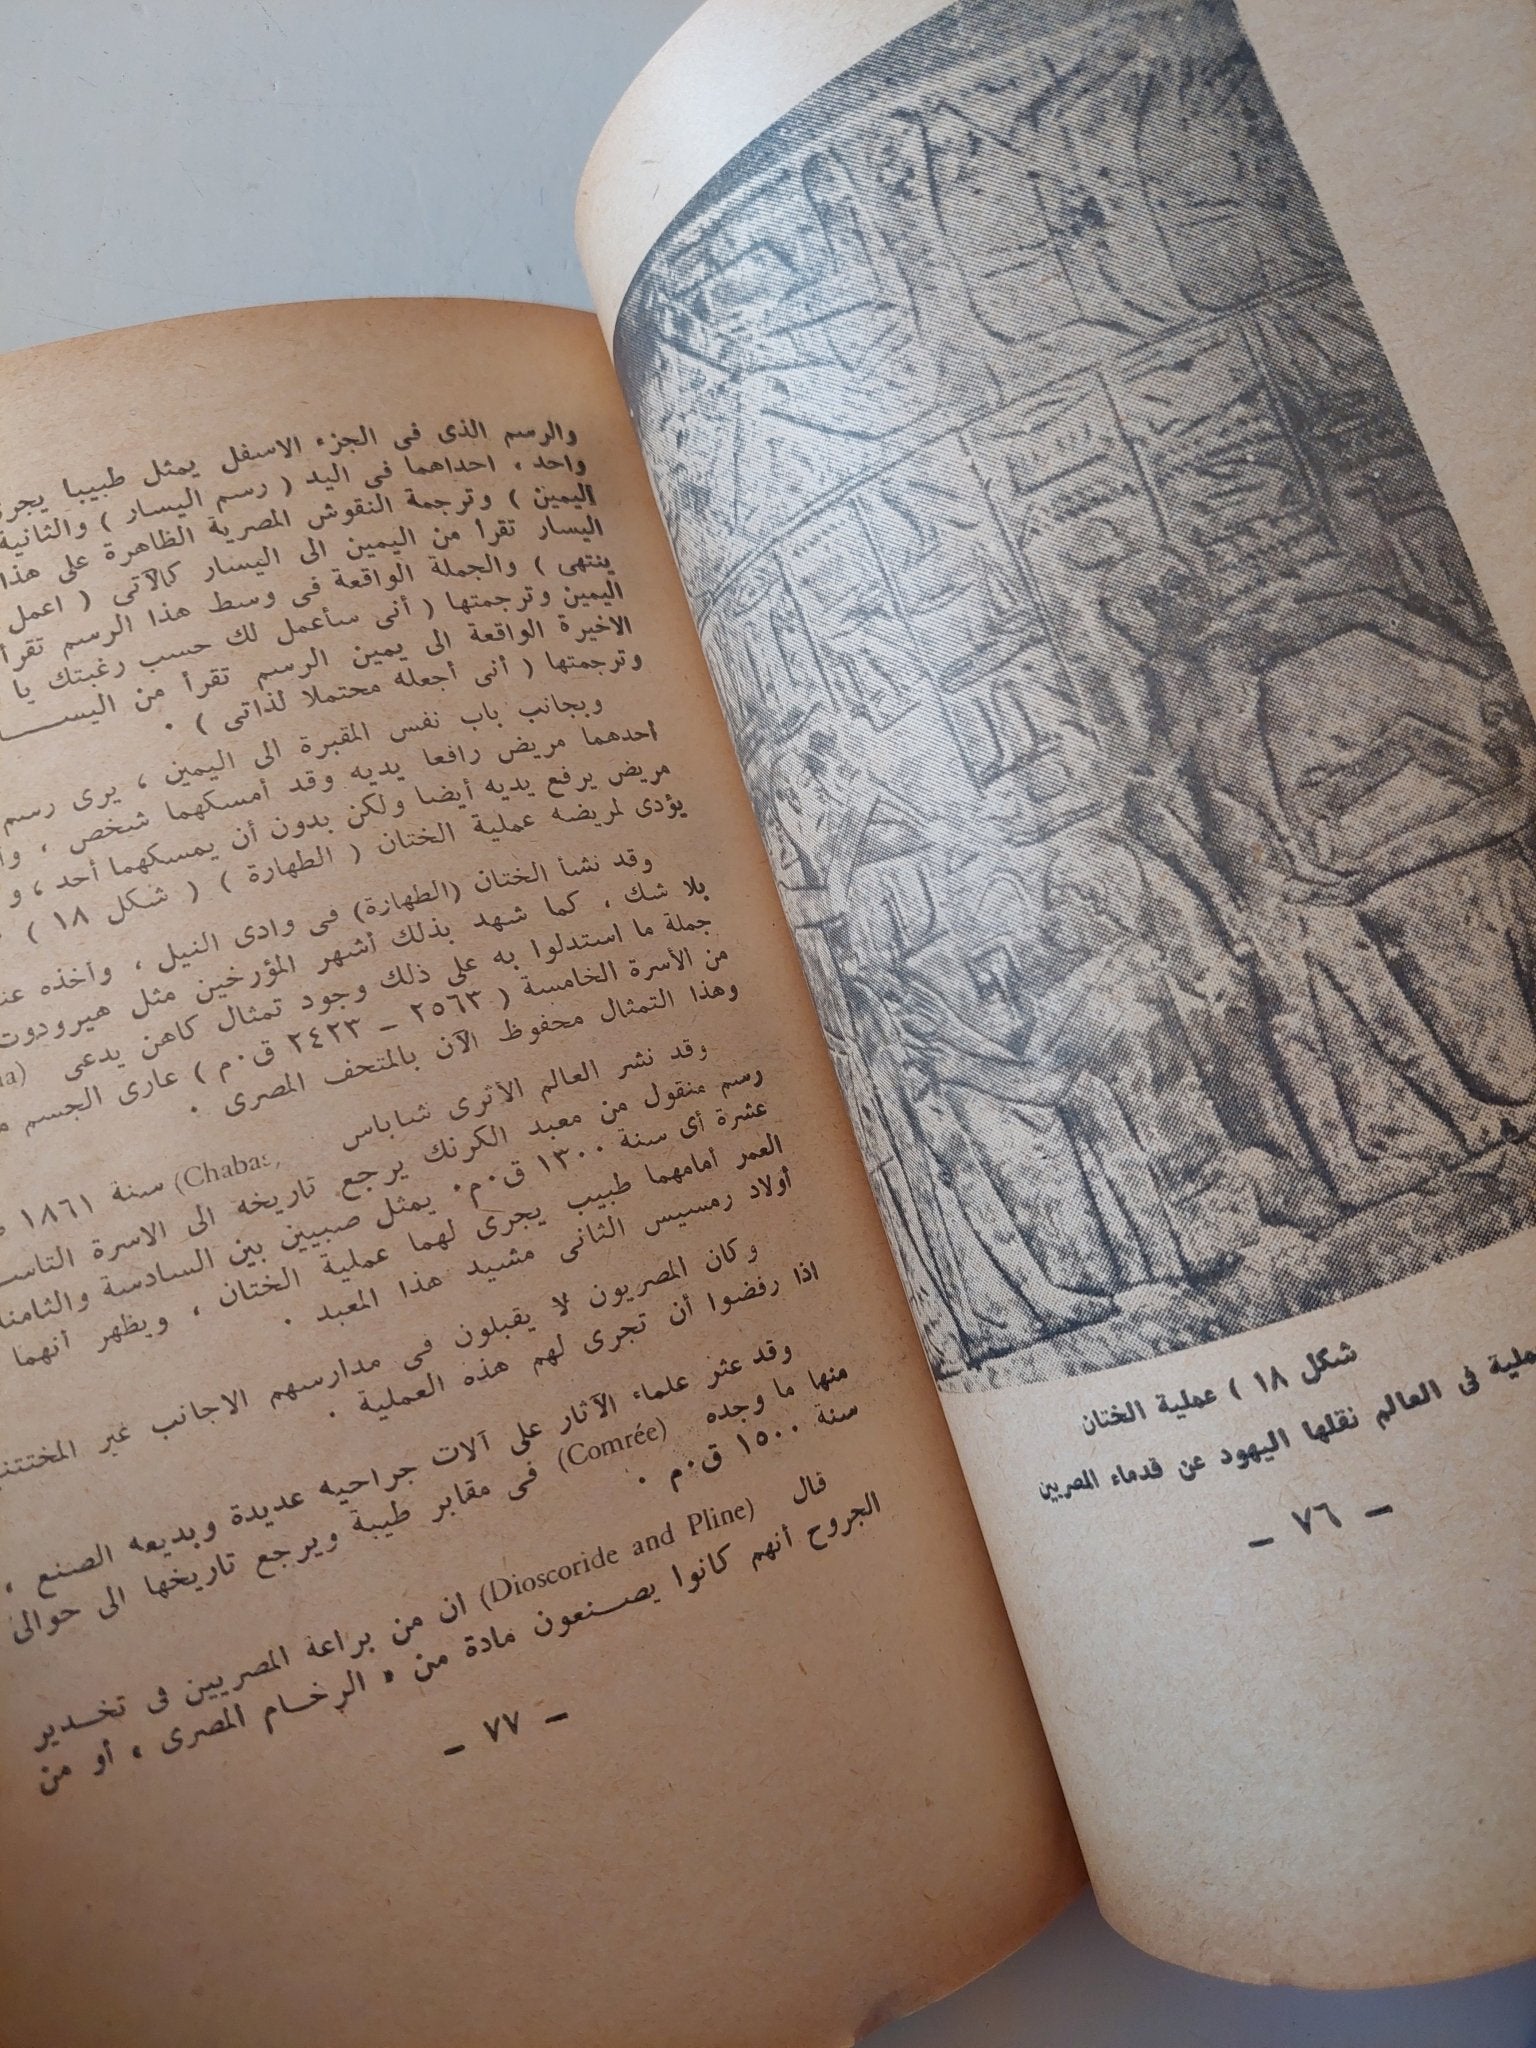 شكل ١٨ ) عملية الختان
فى العالم نقلها اليهود عن قدماء المصريين
– ٧٦ –
والرسم الذى فى الجزء الاسفل يمثل طبيبا
واحد ، احداهما فى اليد ( رسم اليسار ) والثانية
اليمين ) وترجمة النقوش المصرية الظاهرة على هذا
اليسار تقرأ من اليمين الى اليسار كالآتى ( اعمل
ينتهى ) والجملة الواقعة فى وسط هذا الرسم تقرأ
اليمين وترجمتها ( أنى سأعمل لك حسب رغبتك يا
الاخيرة الواقعة الى يمين الرسم تقرأ من
وترجمتها ( أنى أجعله محتملا لذاتى ) .
وبجانب باب نفس المقبرة الى اليمين ، يرى رسم
أحدهما مريض رافعا يديه وقد أمسكهما شخص ،
مريض يرفع يديه أيضا ولكن بدون أن يمسكهما أحد ، و
يؤدى لمريضه عملية الختان ( الطهارة ) ( شكل ١٨ ) .
وقد نشأ الختان (الطهارة) فى وادى النيل ، وأخذه
بلا شك ، كما شهد بذلك أشهر المؤرخين مثل هيرودوت
جملة ما استدلوا به على ذلك وجود تمثال كاهن يدعى
من الأسرة الخامسة ( ٢٥٦٣ – ٢٤٢٣ ق.م ) عارى الجسم
وهذا التمثال محفوظ الآن بالمتحف المصرى .
وقد نشر العالم الأثرى شاباس (Chabas) سنة ١٨٦١
رسم منقول من معبد الكرنك يرجع تاريخه الى الاسرة
عشرة أى سنة ١٣٠٠ ق.م. يمثل صبيين بين السادسة والثامنة
العمر أمامهما طبيب يجرى لهما عملية الختان ، ويظهر أنهما
أولاد رمسيس الثانى مشيد هذا المعبد .
وكان المصريون لا يقبلون فى مدارسهم الاجانب غير
اذا رفضوا أن تجرى لهم هذه العملية .
وقد عثر علماء الآثار على آلات جراحيه عديدة وبديعه الصنع ،
منها ما وجده (Comrée) فى مقابر طيبة ويرجع تاريخها الى حوالى
سنة ١٥٠٠ ق.م .
قال (Dioscoride and Pline) ان من براعة المصريين فى تخدير
الجروح أنهم كانوا يصنعون مادة من « الرخام المصرى » أو من
– ٧٧ –